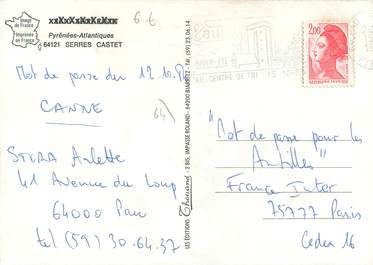 Image de France
Imprimée en France
xxXxXxXxXxXxx
Pyrénées-Atlantiques
64121 SERRES CASTET
6 €
Mot de passe du 12.10.
CANNE
64
STORA Arlette
41 Avenue du Loup
64000 Pau
tel (59) 30.64.37
LES ÉDITIONS Thouand - 2 BIS, IMPASSE ROLAND - 64200 BIARRITZ - TÉL. (59) 23.06.14
CENTRE DE TRI 15 10
2,00
"Mot de passe pour les
Antilles"
France Inter
75777 Paris
Cedex 16